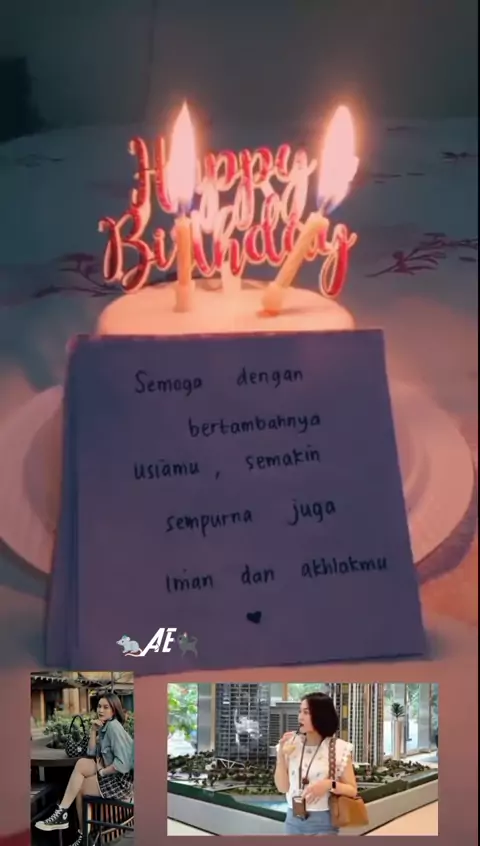 Happy
Birthday
Semoga dengan
bertambahnya
usiamu, semakin
sempurna juga
Iman dan akhlakmu
AE